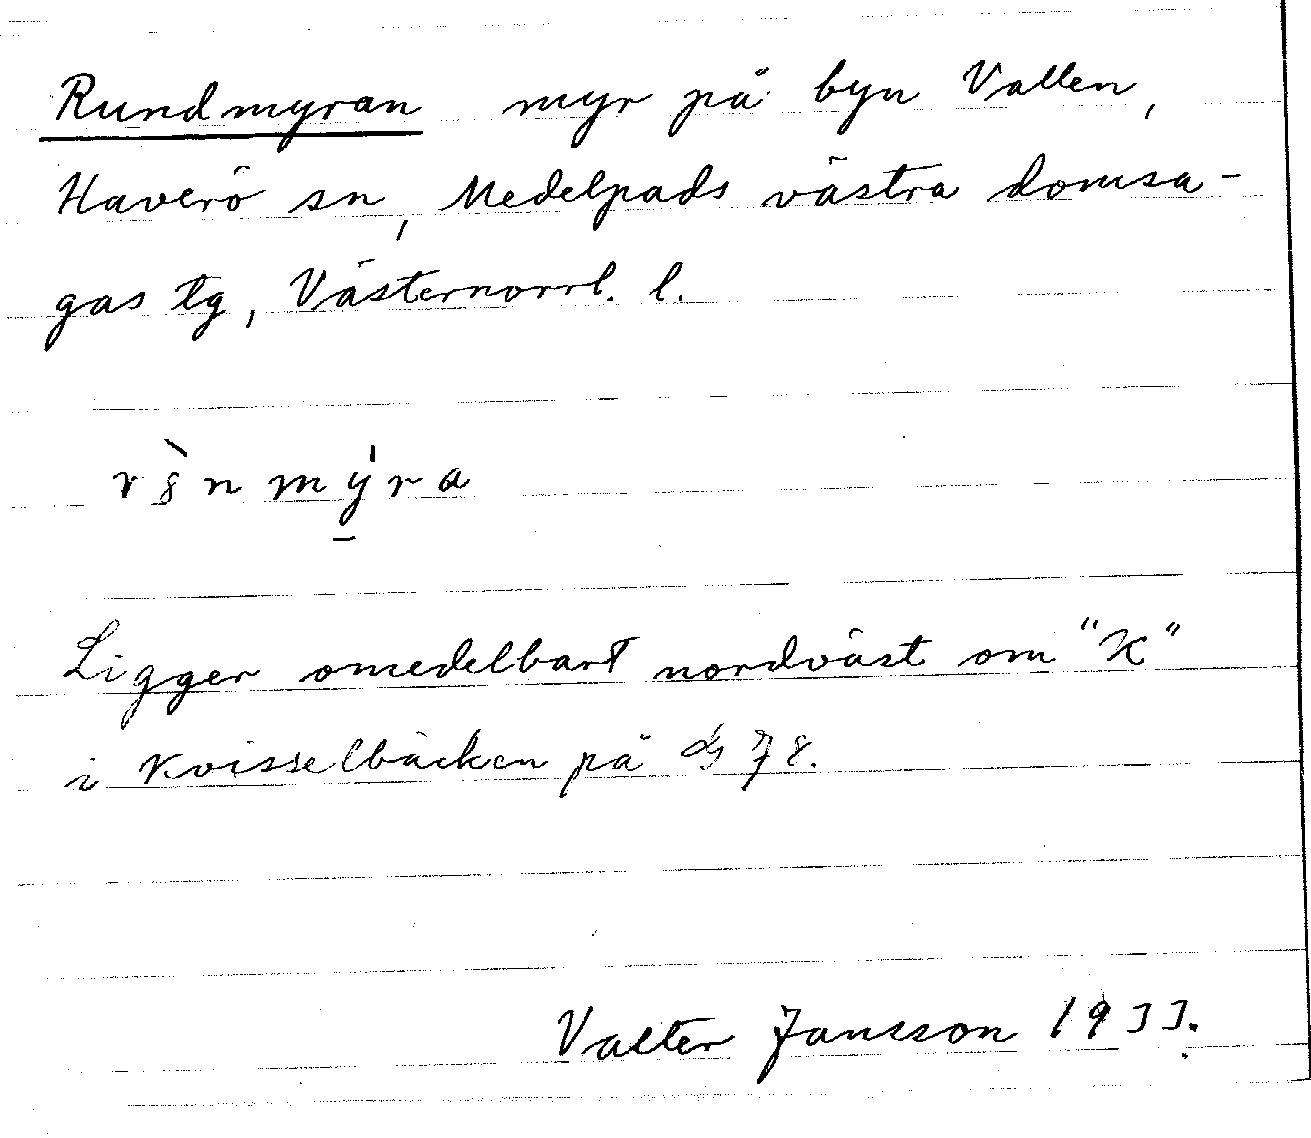 Rundmyran myr på byn Vallen,
Haverö sn, Medelpads västra domsa-
gas tg, Västernorrl. l.
mýra
Ligger omedelbart nordväst om "K"
i Kvisselbäcken på 78.
Valter Jansson 1933.